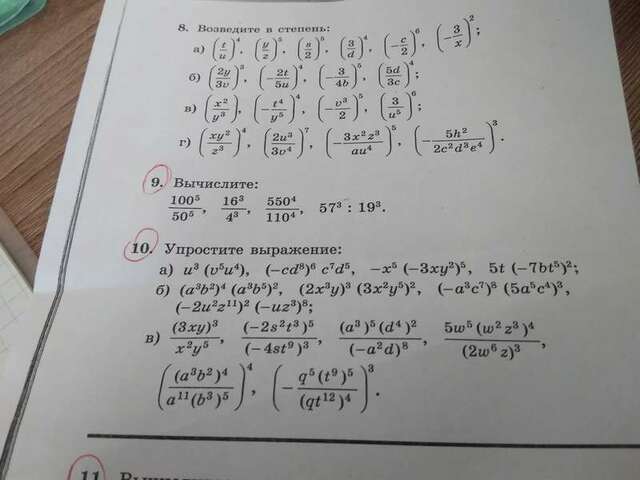 8. Возведите в степень:
а) (t/u)⁴, (y/z)⁵, (s/2)⁵, (3/d)⁴, (−c/2)⁶, (−3/x)²;
б) (2y/3v)³, (−2t/5u)⁴, (−3/4b)⁵, (5d/3c)⁴;
в) (x²/y³)⁴, (−t⁴/y⁵)⁴, (−v³/2)⁵, (3/u⁵)⁶;
г) (xy²/z³)⁴, (2u³/3v⁴)⁷, (−3x²z³/au⁴)⁵, (−5h²/2c²d³e⁴)³.
9. Вычислите:
100⁵/50⁵, 16³/4³, 550⁴/110⁴, 57³ : 19³.
10. Упростите выражение:
а) u³ (v⁵u⁴), (−cd⁸)⁶ c⁷d⁵, −x⁵ (−3xy²)⁵, 5t (−7bt⁵)²;
б) (a³b²)⁴ (a³b⁵)², (2x³y)³ (3x²y⁵)², (−a³c⁷)⁸ (5a⁵c⁴)³,
(−2u²z¹¹)² (−uz³)⁸;
в) (3xy)³/x²y⁵, (−2s²t³)⁵/(−4st⁹)³, (a³)⁵(d⁴)²/(−a²d)⁸, 5w⁵(w²z³)⁴/(2w⁶z)³,
((a³b²)⁴/a¹¹(b³)⁵)⁴, (−q⁵(t⁹)⁵/(qt¹²)⁴)³.
11.